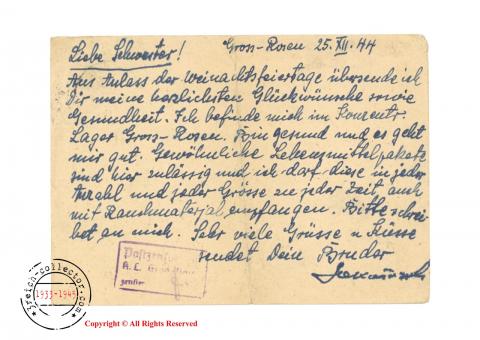 Liebe Schwester! Gross-Rosen 25. XII. 44
Aus Anlass der Weinachtsfeiertage übersende ich
Dir meine herzlichsten Glückwünsche sowie
Gesundheit. Ich befinde mich im Konzentr.
Lager Gross-Rosen. Bin gesund und es geht
mir gut. Gewöhnliche Lebensmittelpakete
sind hier zulässig und ich darf diese in jeder
Anzahl und jeder Grösse zu jeder Zeit auch
mit Rauchmaterial empfangen. Bitte schrei-
bet an mich. Sehr viele Grüsse u Küsse
sendet Dein Bruder
Postzensur
K. L.
zensiert
3reich-collector.com
1933-1945
Copyright © All Rights Reserved